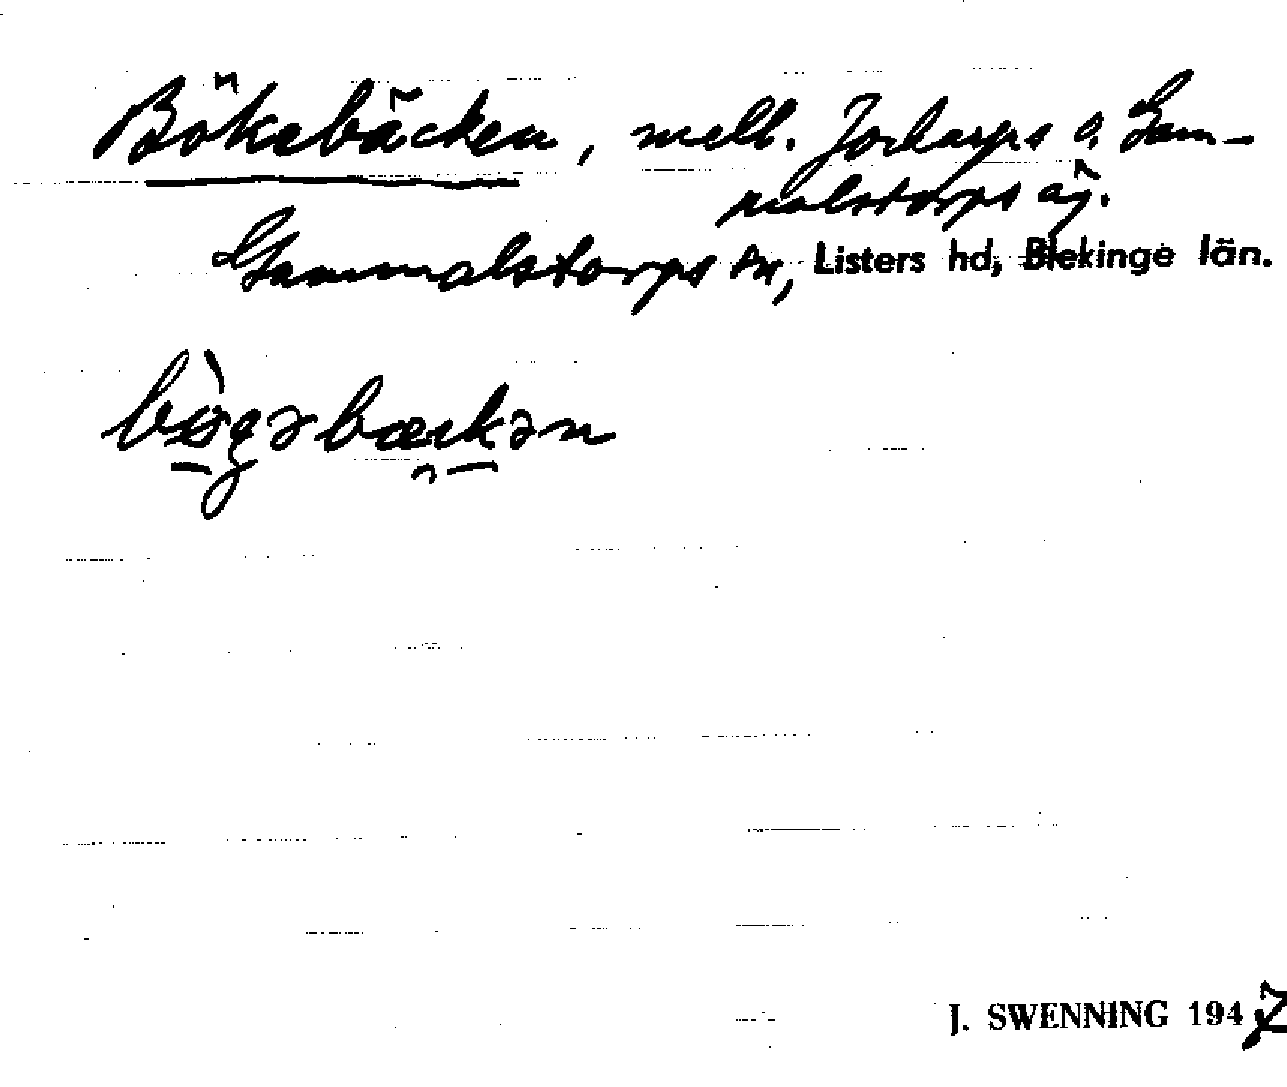 Bökebäcken, mell. Jordarps o. Gam-
malstorps äg.
Gammalstorps sn, Listers hd, Blekinge län.
bø̀gəbækən
J. SWENNING 1947